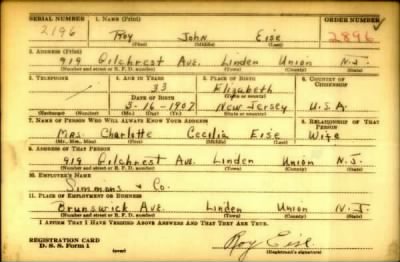 SERIAL NUMBER 1. NAME (Print) ORDER NUMBER
2196 Roy John Eise 2896
(First) (Middle) (Last)
2. ADDRESS (Print)
919 Gilchrest Ave. Linden Union N.J.
(Number and street or R. F. D. number) (Town) (County) (State)
3. TELEPHONE 4. AGE IN YEARS 5. PLACE OF BIRTH 6. COUNTRY OF CITIZENSHIP
33 Elizabeth
DATE OF BIRTH (Town or county)
3-16-1907 New Jersey U.S.A.
(Exchange) (Number) (Mo.) (Day) (Yr.) (State or country)
7. NAME OF PERSON WHO WILL ALWAYS KNOW YOUR ADDRESS 8. RELATIONSHIP OF THAT PERSON
Mrs. Charlotte Cecilia Eise Wife
(Mr., Mrs., Miss) (First) (Middle) (Last)
9. ADDRESS OF THAT PERSON
919 Gilchrest Ave. Linden Union N.J.
(Number and street or R. F. D. number) (Town) (County) (State)
10. EMPLOYER'S NAME
Simmons & Co.
11. PLACE OF EMPLOYMENT OR BUSINESS
Brunswick Ave. Linden Union N.J.
(Number and street or R. F. D. number) (Town) (County) (State)
I AFFIRM THAT I HAVE VERIFIED ABOVE ANSWERS AND THAT THEY ARE TRUE.
REGISTRATION CARD
D. S. S. Form 1 (over) Roy Eise
(Registrant's signature)